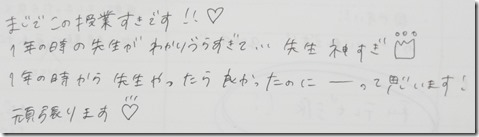 まじでこの授業すきです!!♡
1年の時の先生がわかりづらすぎて… 先生神すぎ
1年の時から先生やったら良かったのにーって思います!
頑張ります♡